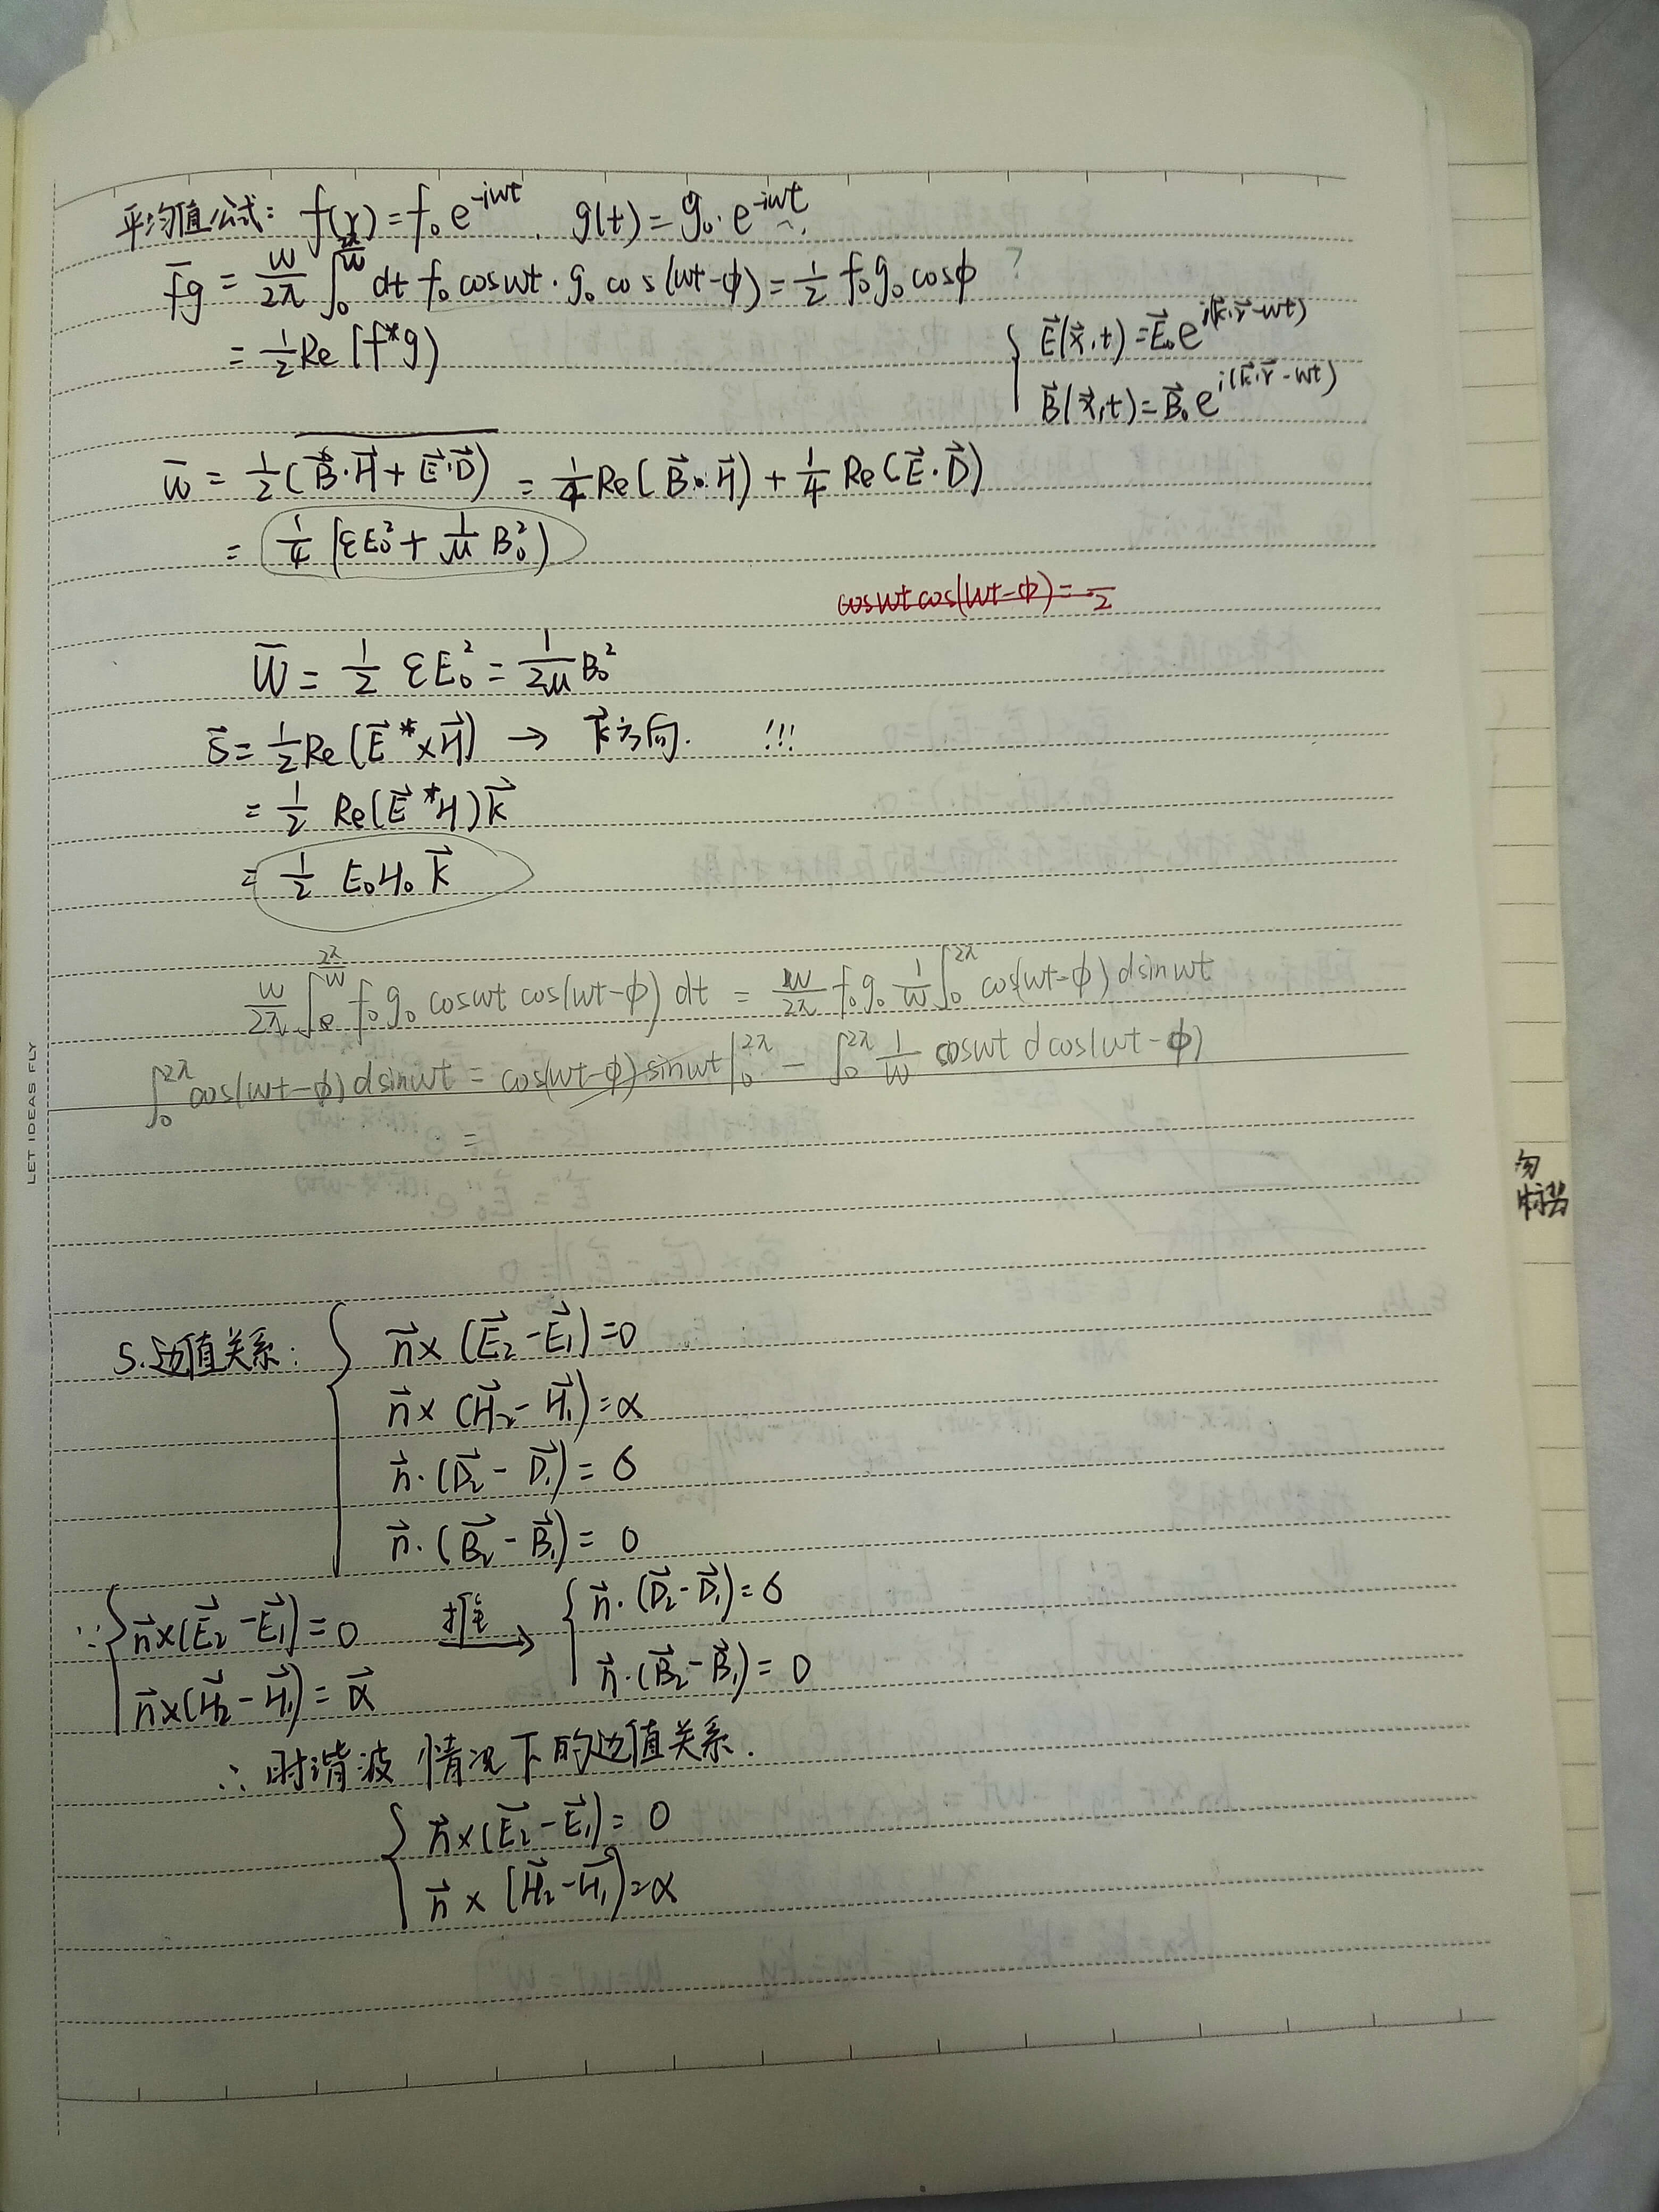 平均值公式: f(r)=f₀e^{-iwt}. g(t)=g₀·e^{-iwt}
f̄g = w/2π ∫₀^{2π/w} dt f₀coswt·g₀cos(wt-φ)=½f₀g₀cosφ ?
=½Re(f*g)
{ E⃗(x⃗,t)=E⃗₀e^{i(k⃗·r⃗-wt)}
B⃗(x⃗,t)=B⃗₀e^{i(k⃗·r⃗-wt)}
w̄ = ½(B⃗·H⃗+E⃗·D⃗) = ¼Re(B⃗·H⃗)+¼Re(E⃗·D⃗)
= ¼(εE₀²+1/μ B₀²)
coswt cos(wt-φ)=-/2
W̄ = ½ εE₀² = 1/2μ B₀²
s̄=½Re(E⃗*×H⃗) → k⃗方向. !!!
=½ Re(E⃗*H)k⃗
=½ E₀H₀ k⃗
w/2π ∫₀^{2π/w} f₀g₀ coswt cos(wt-φ) dt = w/2π f₀g₀ 1/w ∫₀^{2π} cos(wt-φ) dsinwt
∫₀^{2π} cos(wt-φ)dsinwt = cos(wt-φ)sinwt|₀^{2π} - ∫₀^{2π} 1/w coswt dcos(wt-φ)
=
LET IDEAS FLY
5.边值关系: { n⃗×(E⃗₂-E⃗₁)=0
n⃗×(H⃗₂-H⃗₁)=α
n⃗·(D⃗₂-D⃗₁)=σ
n⃗·(B⃗₂-B⃗₁)=0
∵{ n⃗×(E⃗₂-E⃗₁)=0 推→ { n⃗·(D⃗₂-D⃗₁)=σ
n⃗×(H⃗₂-H⃗₁)=α⃗ n⃗·(B⃗₂-B⃗₁)=0
∴时谐波 情况下的边值关系.
{ n⃗×(E⃗₂-E⃗₁)=0
n⃗×(H⃗₂-H⃗₁)=α